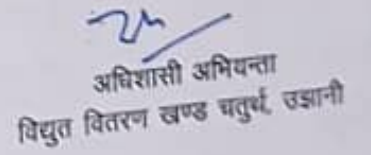 अधिशासी अभियन्ता
विद्युत वितरण खण्ड चतुर्थ, उझानी